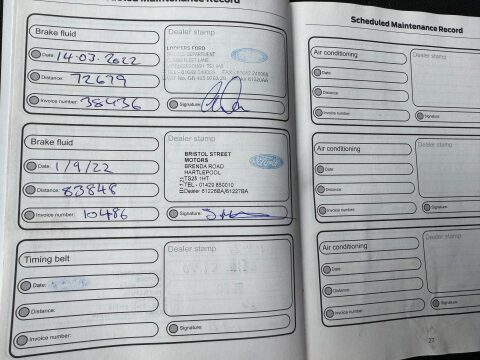 Scheduled Maintenance Record
Brake fluid
Date: 14-03-2022
Distance: 72679
Invoice number: 38436
Dealer stamp
Signature:
Brake fluid
Date: 1/9/22
Distance: 83848
Invoice number: 10486
Dealer stamp
BRISTOL STREET
MOTORS
BRENDA ROAD
HARTLEPOOL
TS25 1HT
TEL - 01429 850010
Dealer 61226BA/61227BA
Ford
Signature:
Timing belt
Date:
Distance:
Invoice number:
Dealer stamp
Signature:
Scheduled Maintenance Record
Air conditioning
Date:
Distance:
Invoice number:
Dealer stamp
Signature:
Air conditioning
Date:
Distance:
Invoice number:
Dealer stamp
Signature:
Air conditioning
Date:
Distance:
Invoice number:
Dealer stamp
Signature: